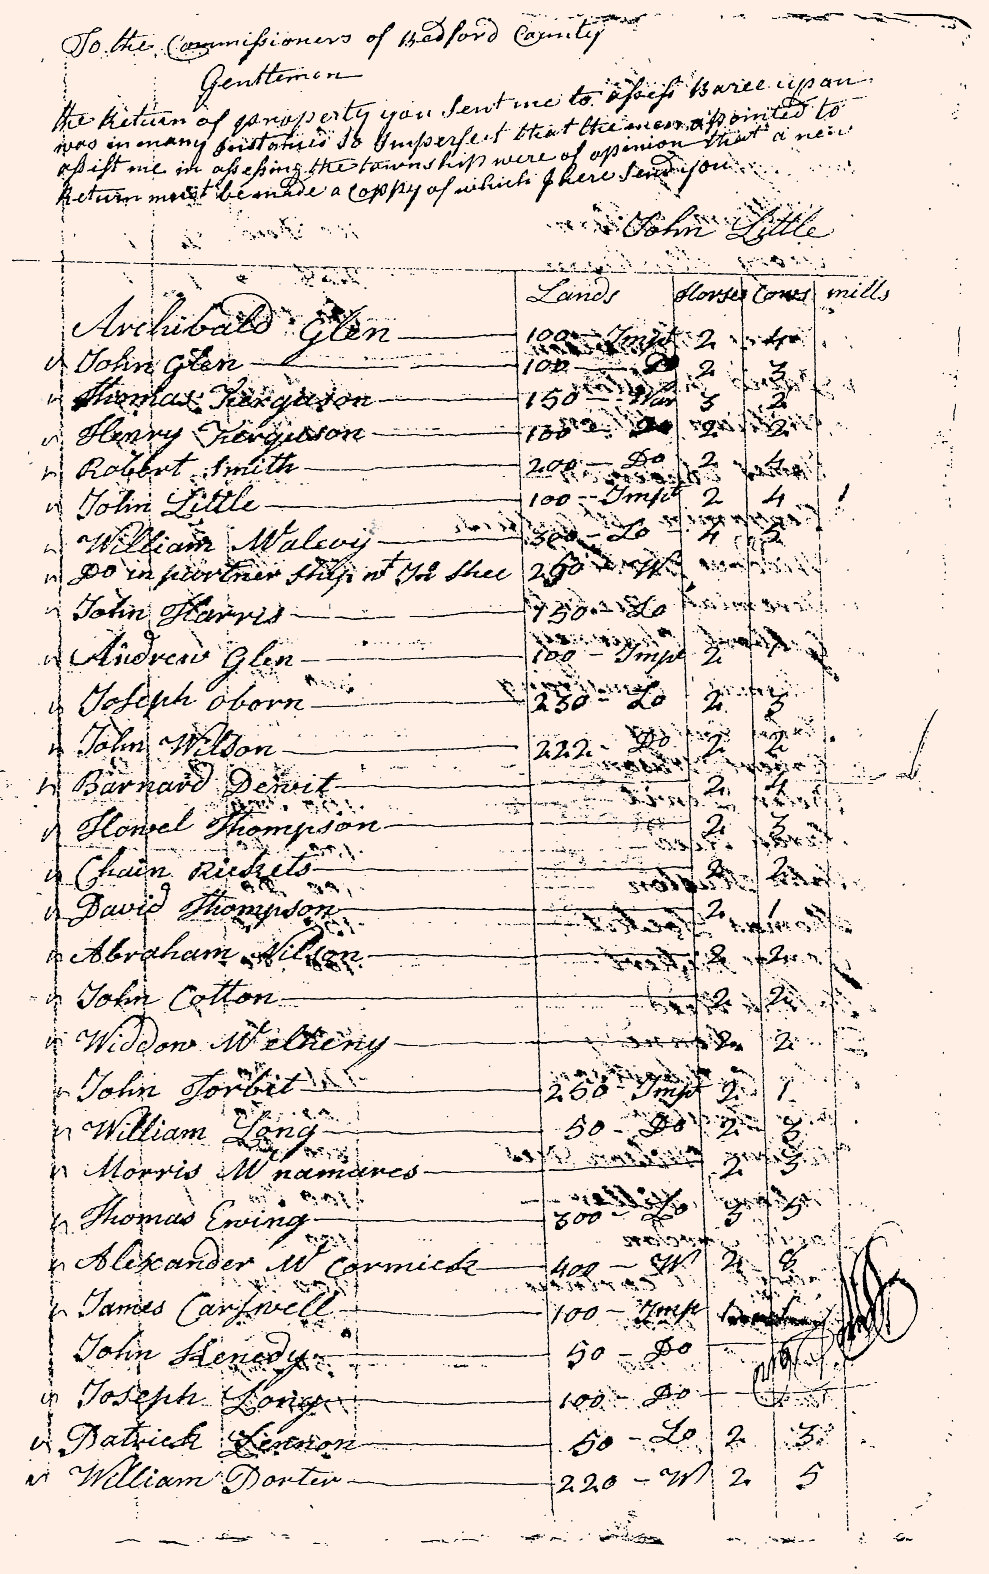 To the Commissioners of Bedford County
Gentlemen
the Return of property you Sent me to assess Baree upon
was in many Instances So Imperfect that the men appointed to
assist me in assessing the township were of opinion that a new
Return must be made a Coppy of which I here Send you
John Little
Lands Horses Cows mills
Archibald Glen 100 - Impt 2 4
John Glen 100 Do 2 3
Thomas Ferguson 150 - War 3 2
Henry Ferguson 100 Do 2 2
Robert Smith 200 - Do 2 4
John Little 100 - Impt 2 4 1
William Mclevy 300 - Do 4 2
Do in partner Ship wt Jno Shee 250 - W
John Harris 150 - Do
Andrew Glen 100 - Impt 2 1
Joseph oborn 230 - Do 2 3
John Wilson 222 - Do 2 2
Barnard Dewit 2 4
Howel Thompson 2 3
Chain Rickets 2 2
David Thompson 2 1
Abraham Nilson 2 2
John Cotton 2 2
Widdow Mc elheny 2 2
John Torbit 250 - Imp 2 1
William Long 50 - Do 2 3
Morris Mc namares 2 3
Thomas Ewing 300 - Do 3 5
Alexander Mc Cormick 400 - W 2 8
James Carswell 100 - Imp
John Kenedy 50 - Do
Joseph Long 100 - Do
Patrick Lennon 50 - Do 2 3
William Porter 220 - W 2 5